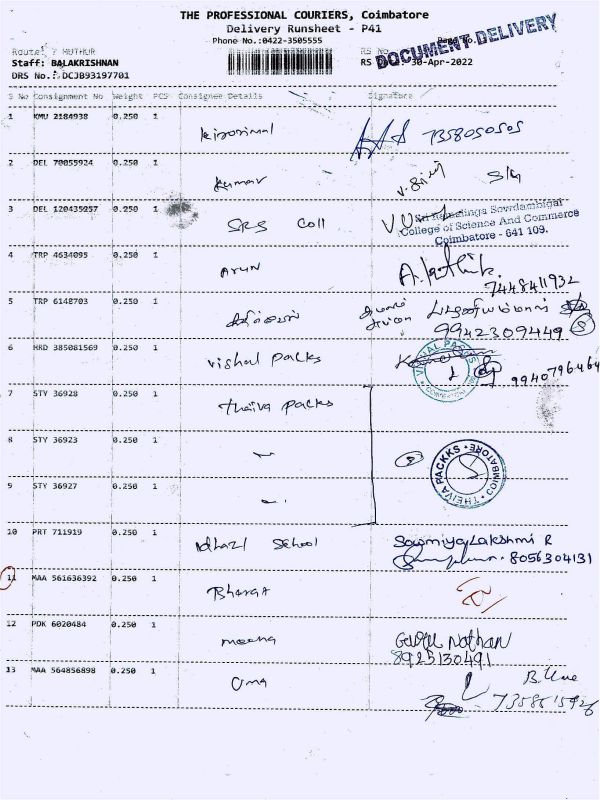 THE PROFESSIONAL COURIERS, Coimbatore
Delivery Runsheet - P41
Phone No.:0422-3505555
DOCUMENT DELIVERY
Route: 7 MUTHUR
Staff: BALAKRISHNAN
RS 30-Apr-2022
DRS No.: DCJB93197701
S No Consignment No Weight PCS Consignee Details Signature
1 KMU 2184938 0.250 1 7358050505
2 DEL 70055924 0.250 1 Kumar
3 DEL 120435257 0.250 1 SRS Coll
College of Science And Commerce
Coimbatore - 641 109.
4 TRP 4634095 0.250 1 Arun
7448411932
5 TRP 6148703 0.250 1
9942309449
6 HKD 385081569 0.250 1 vishal packs
VISHAL PACKS
9940796464
7 STY 36928 0.250 1 Theiva packs
8 STY 36923 0.250 1
THEIVA PACKKS COIMBATORE
9 STY 36927 0.250 1
10 PRT 711919 0.250 1 School Sowmiya Lakshmi R
8056304131
11 MAA 561636392 0.250 1 Bharat
12 PDK 6020484 0.250 1 meena Nathan
8925130491
13 MAA 564856898 0.250 1 Uma